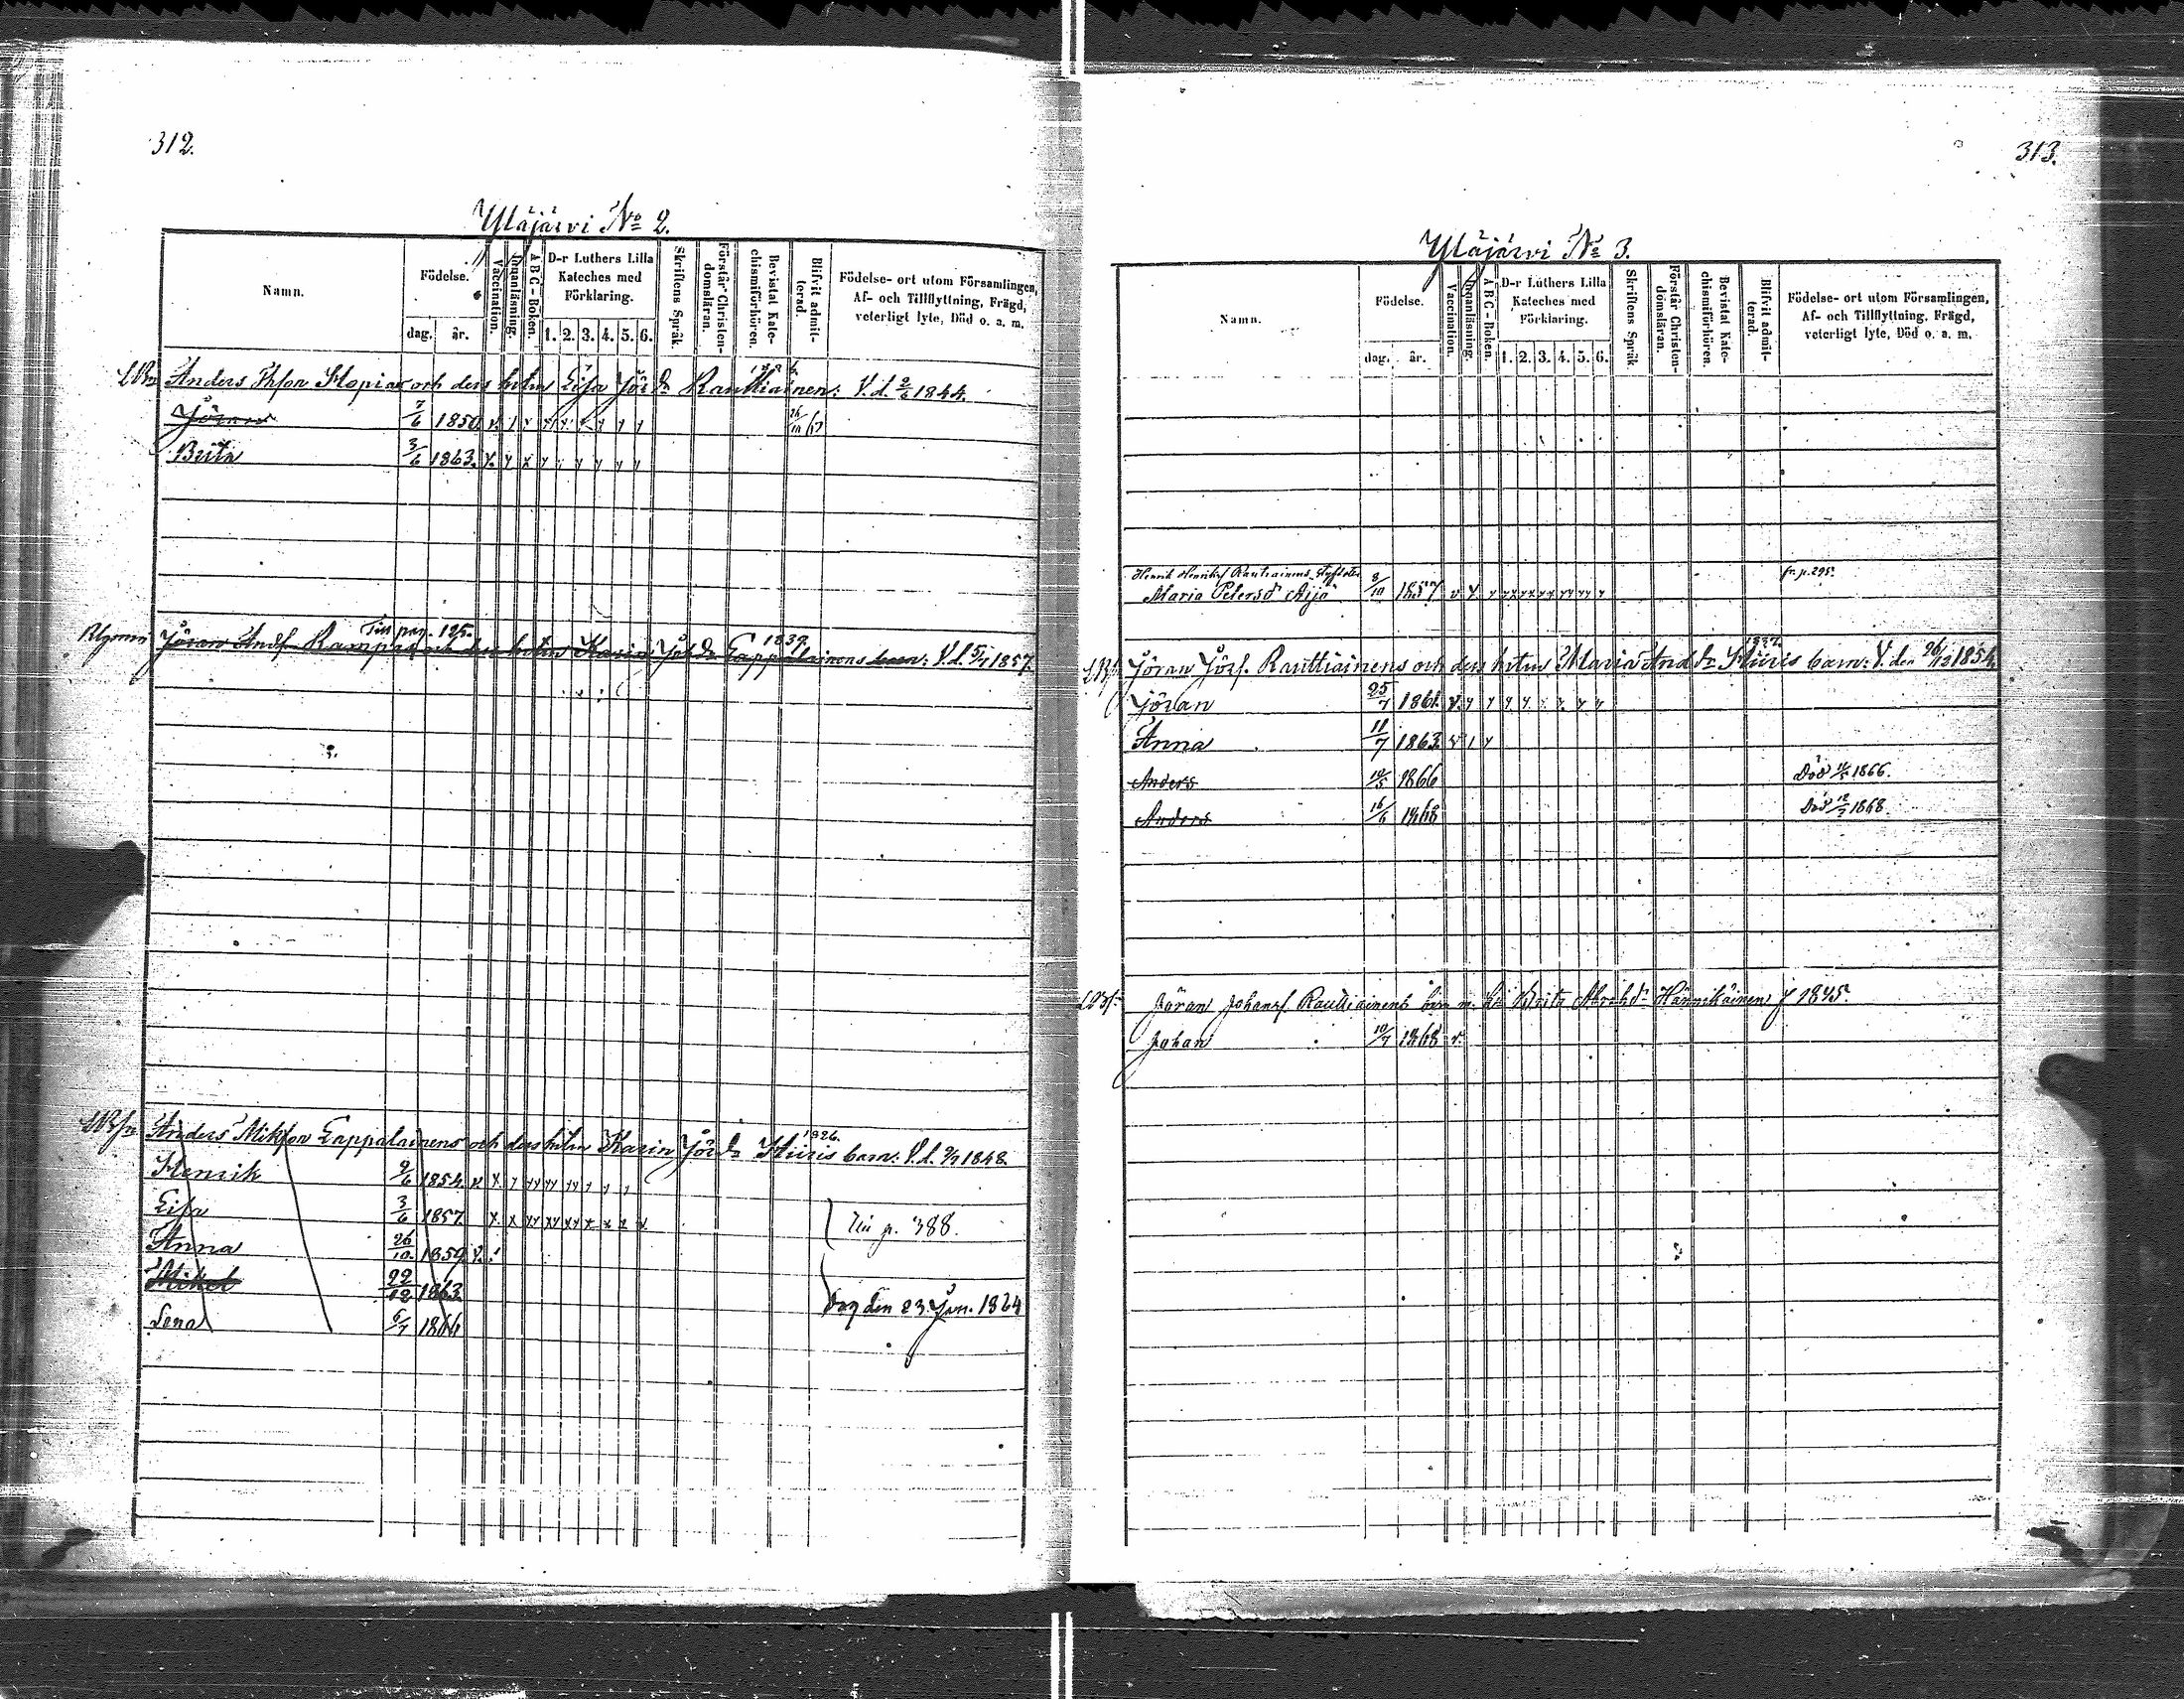 312.
Yläjärvi No 2.
Namn.
Födelse.
dag. år.
Vaccination.
Innanläsning.
A B C - Boken.
D-r Luthers Lilla
Kateches med
Förklaring.
1. 2. 3. 4. 5. 6.
Skriftens Språk.
Förstår Christen-
domsläran.
Bevistat Kate-
chismiförhören.
Blifvit admit-
terad.
Födelse- ort utom Församlingen,
Af- och Tillflyttning, Frägd,
veterligt lyte, Död o. a. m.
Anders och dess hustru Eisa Jör. dr Rauttiainen: V. d. 2/6 1844.
Jöran 7/6 1850
Brita 3/6 1863.
Till pag. 125.
1839.
Jöran Andf. och dess hustru Karin Jör. dr Lappalainens barn: V. d. 5/7 1857.
1826.
Anders Mikfon Lappalainens och dess hustru Karin Jör. dr Hiiris barn: V. d. 1848.
Henrik 9/6 1854.
Eisa 3/6 1857
Anna 26/10. 1859.
Mikel 22/12 1863.
Lena 6/7 1866
Till p. 388.
den 23. Jan. 1864
313.
Yläjärvi No 3.
Namn.
Födelse.
dag. år.
Vaccination.
Innanläsning.
A B C - Boken.
D-r Luthers Lilla
Kateches med
Förklaring.
1. 2. 3. 4. 5. 6.
Skriftens Språk
Förstår Christen-
domsläran.
Bevistat Kate-
chismiförhören.
Blifvit admit-
terad.
Födelse- ort utom Församlingen,
Af- och Tillflyttning, Frägd,
veterligt lyte, Död o. a. m.
Henrik Henriksf Rautiainens fr. p. 295.
Maria Petersd Äijö 8/10 1857
1837.
Jöran Jörf. Rauttiainens och dess hustru Maria And. dr Hiiris barn: V. den 26/12 1854.
Jöran 25/7 1861.
Anna 11/7 1863
Anders 10/5 1866 Död 1866.
Anders 16/6 1868 Död 12/7 1868.
Jöran Johansf. Rauttiainens barn m. hu Brita Abrahd. Hännikäinen f 1845.
Johan 10/7 1868